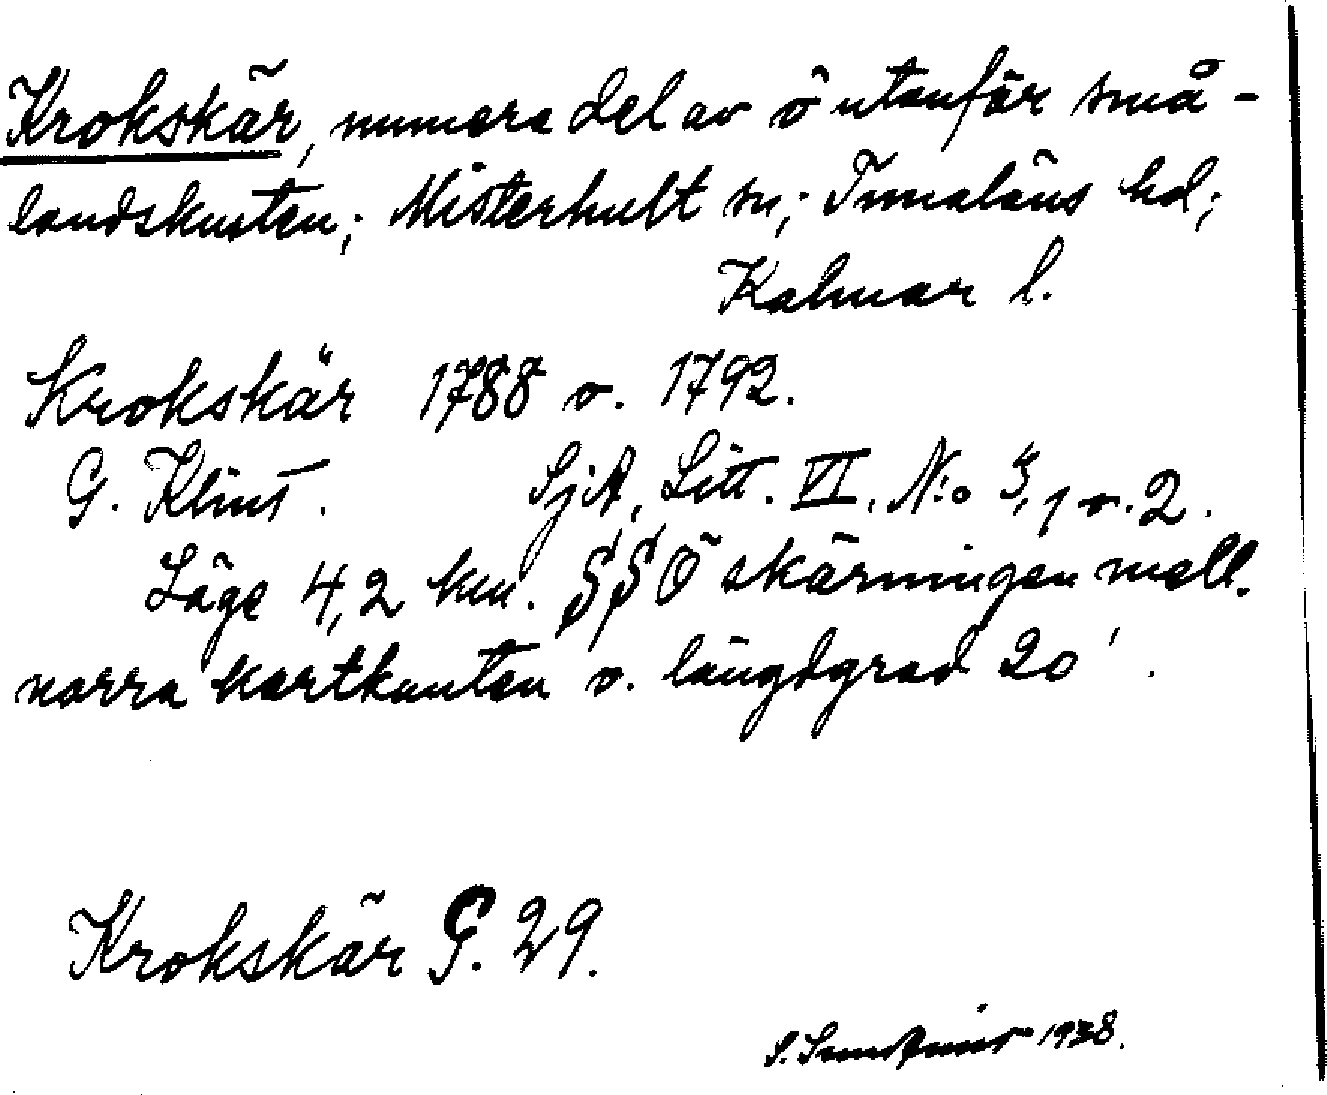 Krokskär, numera del av ö utanför små-
landskusten; Misterhult sn; Tunaläns hd;
Kalmar l.
Krokskär 1788 o. 1792.
G. Klint. SjA, Litt. VI. N:o 3, 1 o. 2.
Läge 4,2 km. SSÖ skärningen mell.
norra kartkanten o. längdgrad 20'.
Krokskär G. 29.
S. 1938.